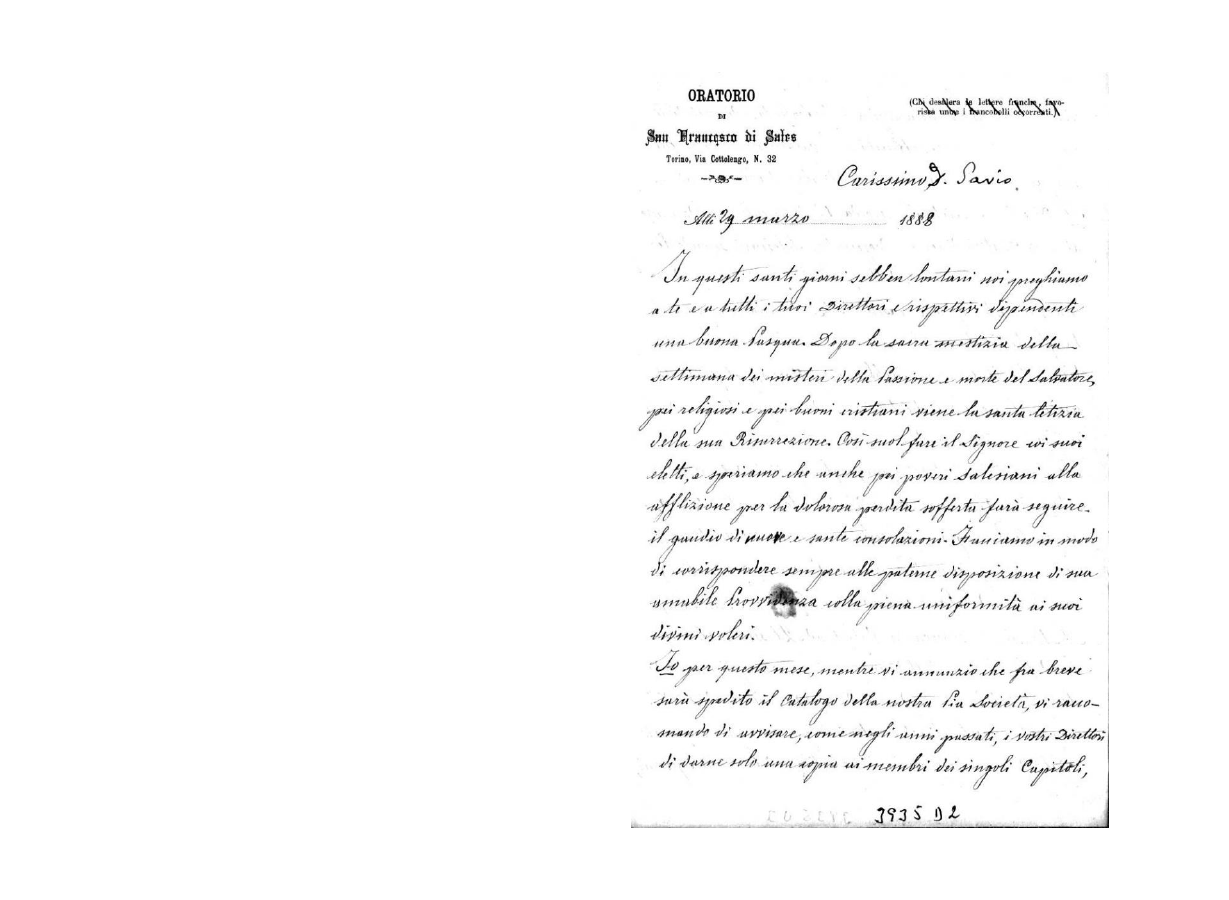 ORATORIO
DI
San Francesco di Sales
Torino, Via Cottolengo, N. 32
(Chi desidera le lettere franche, favo-
risca unire i francobolli occorrenti.)
Carissimo D. Savio
Alli 29 marzo 1888
In questi santi giorni sebben lontani noi preghiamo
a te e a tutti i tuoi Direttori e rispettivi dipendenti
una buona Pasqua. Dopo la sacra mestizia della
settimana dei misteri della Passione e morte del Salvatore,
pei religiosi e pei buoni cristiani viene la santa letizia
della sua Risurrezione. Così suol fare il Signore coi suoi
eletti, e speriamo che anche pei poveri Salesiani alla
afflizione per la dolorosa perdita sofferta farà seguire
il gaudio di nuove e sante consolazioni. Facciamo in modo
di corrispondere sempre alle paterne disposizione di sua
amabile Provvidenza colla piena uniformità ai suoi
divini voleri.
Io per questo mese, mentre vi annunzio che fra breve
sarà spedito il Catalogo della nostra Pia Società, vi racco-
mando di avvisare, come negli anni passati, i vostri Direttori
di darne solo una copia ai membri dei singoli Capitoli,
3935 D2